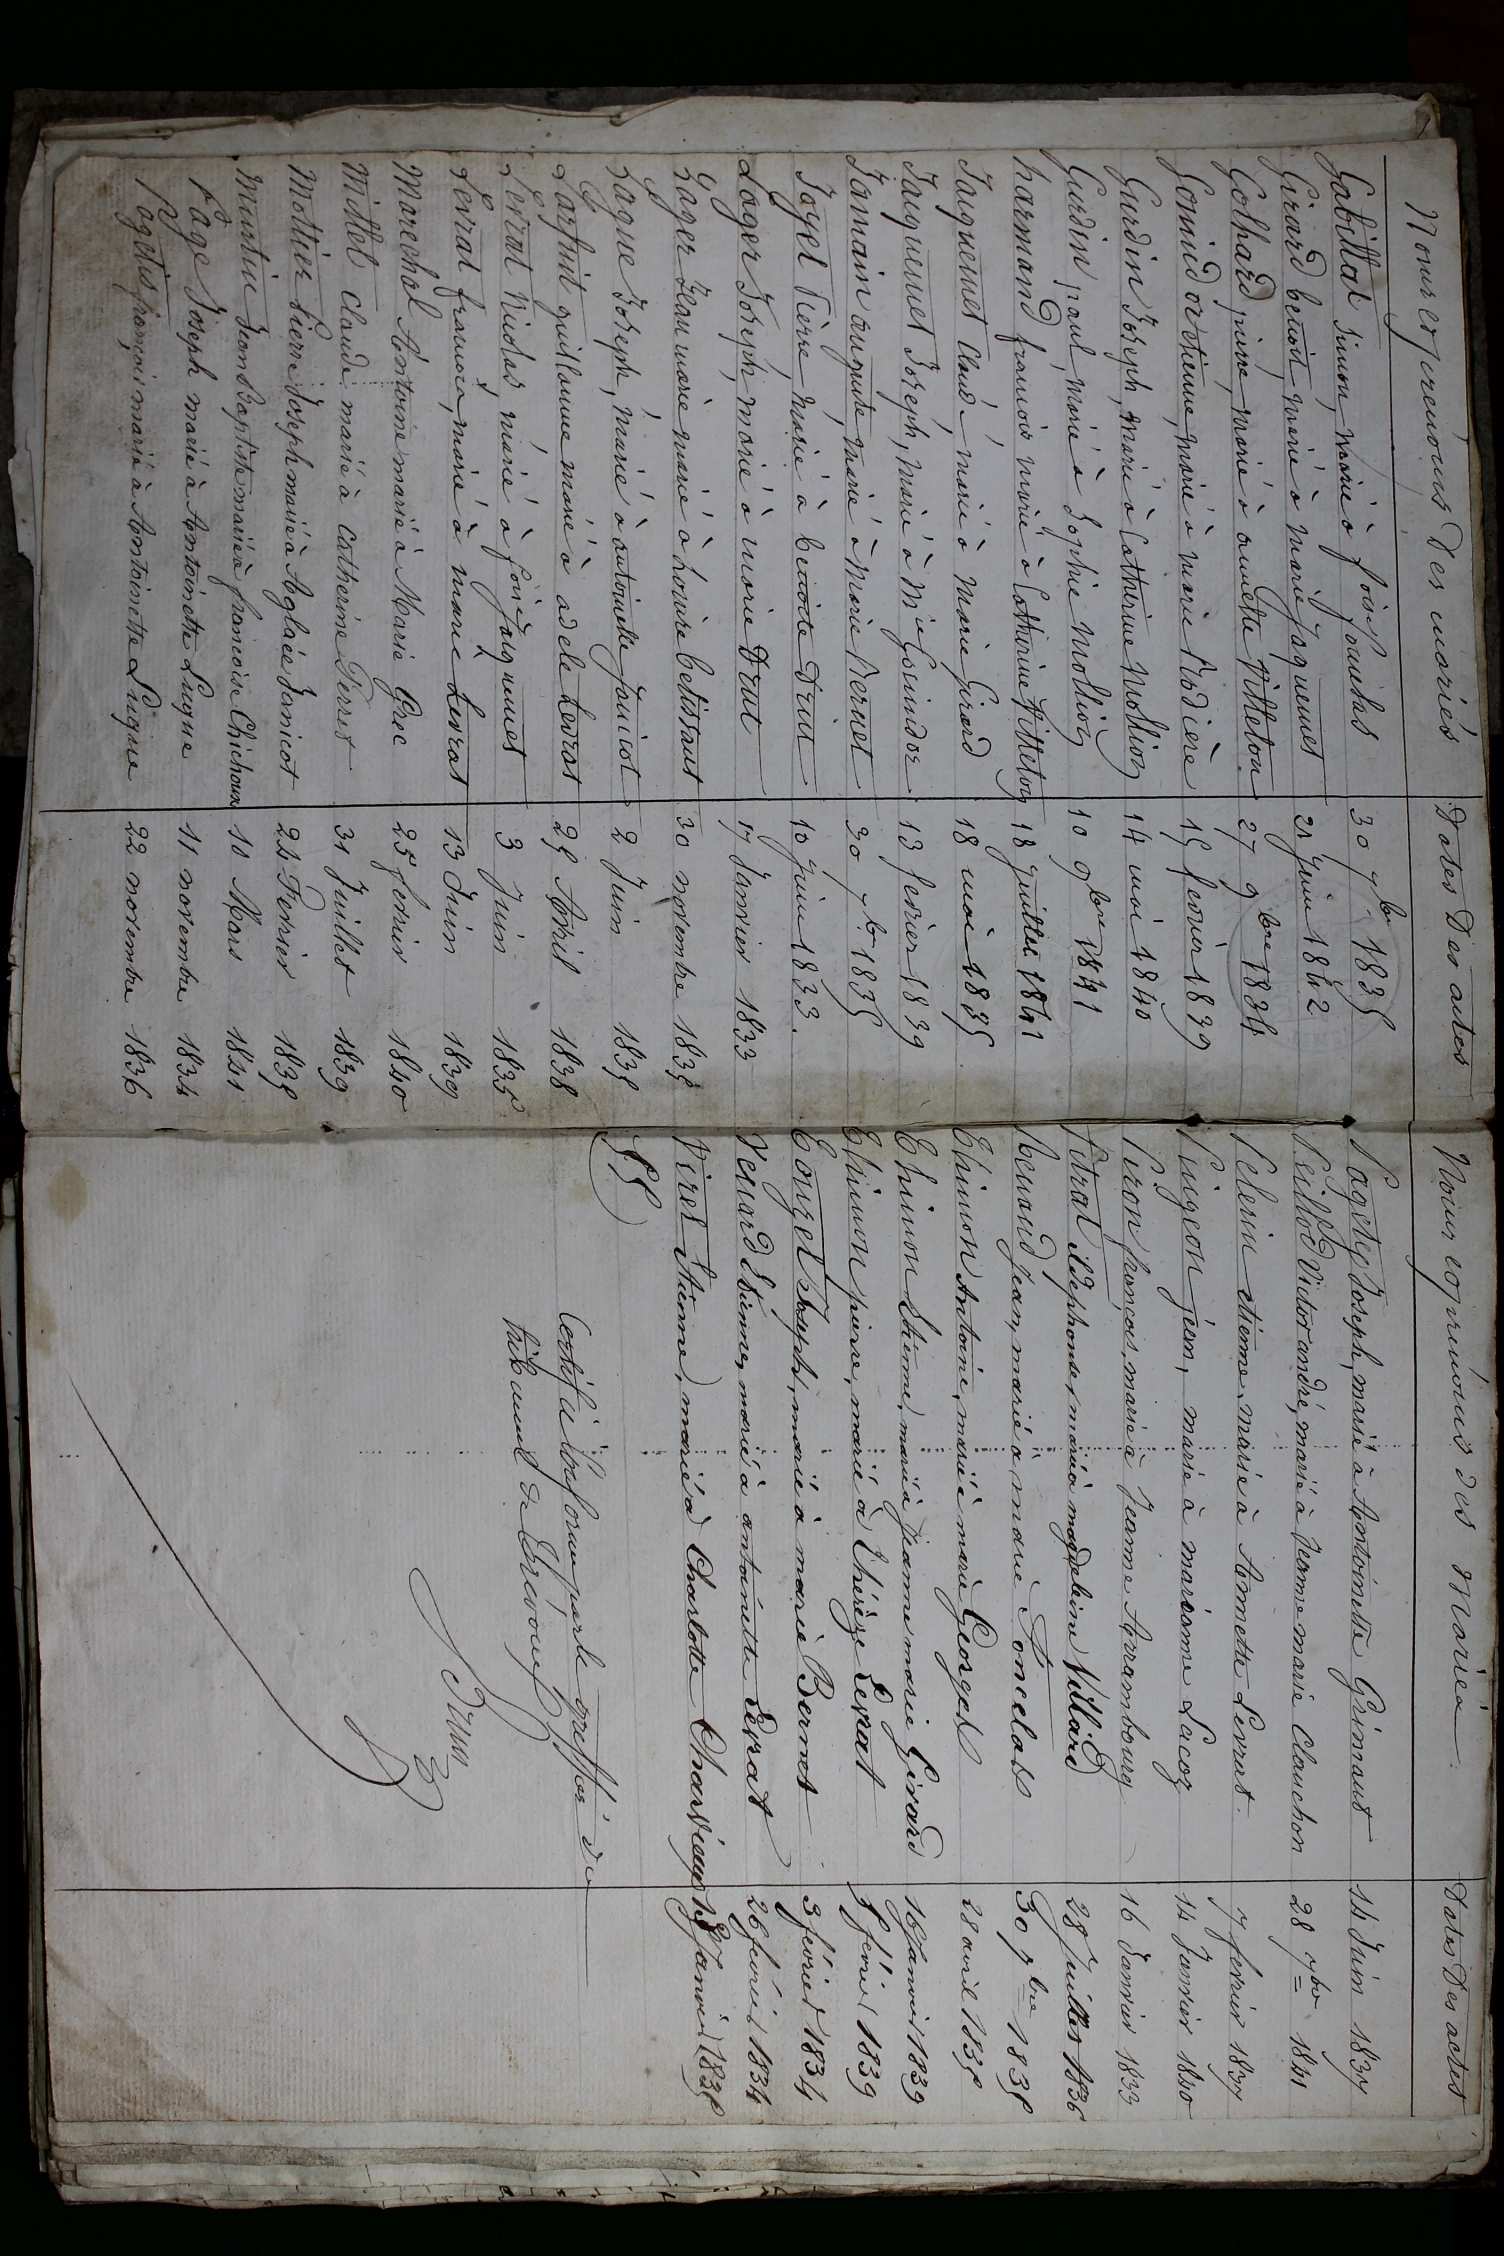 Noms et prénoms des mariés Dates des actes
Gabillat Simon, marié à foise 30 7bre 1835
Girard benoit, marié à marie Jaquemet 21 Juin 1842
Golhard pierre, marié à annette Villeton 27 9bre 1834
marié à marie 15 fevrier 1839
Gurdin Joseph, marié à Catherine Mollion 14 mai 1840
Gurdin paul, marié à Sophie Mollion 10 9bre 1841
harmand francois marié à Catherine Villeton 18 juillet 1841
Jaquemet Claude marié à Marie Girard 18 mai 1835
Jaquemet Joseph, marié à Mie 13 fevrier 1839
Jomain auguste, marié à Marie Vernet 30 7bre 1835
Joyet Pierre, marié à benoite Drut 10 Juin 1833.
Lager Joseph, marié à marie Drut 17 Janvier 1833
Lager Jean marie marié à Louise belissant 30 novembre 1835
Lague Joseph, marié à antoinette Janicot 2 Juin 1835
guillaume marié à adele Levrat 25 Avril 1838
Levrat Nicolas, marié à foise Jaquemet 3 Juin 1835
Levrat francois, marié à marie Levrat 13 Juin 1839
Marechal Antoine marié à Marie Grec 25 fevrier 1840
Millet Claude marié à Catherine Perret 31 Juillet 1839
Mollier Pierre Joseph marié à Aglaée Janicot Fevrier 1835
Jean Baptiste marié à francoise Chichoux 10 Mars 1841
Page Joseph marié à Antoinette Lugne 11 novembre 1834
Pagetus francois marié à Antoinette Lugne 22 novembre 1836
Noms et prénoms des Mariés. Dates Des actes
Joseph, marié à Antoinette Grimaut 14 Juin 1837
Victor andré, marié à Jeanne marie Clauchon 28 7bre 1841
Pelerin etienne, marié à Annette Levrat. 7 fevrier 1837
Pingeon jean, marié à marianne Lacoz 14 Janvier 1840
Piron francois, marié à Jeanne Arrambourg 16 Janvier 1833
Pitrat ildephonse, marié à magdeleine Villard 28 Juillet 1836
Renaud Jean, marié à marie Poncelat 30 7bre 1835
Thimon Antoine, marié à marie Georges 28 avril 1835
Thimon Etienne, marié à Jeanne marie Girard 16 Janvier 1839
Thimon pierre, marié à Thérèze Levrat 5 février 1839
Touzet Joseph, marié à marie Bernet 3 février 1834
Venard Etienne, marié à antoinette Levrat 26 fevrier 1834
Viret Etienne, marié à Charlotte Charvieux Janvier 1835
Certifié conforme par le greffier du
tribunal de Trévoux